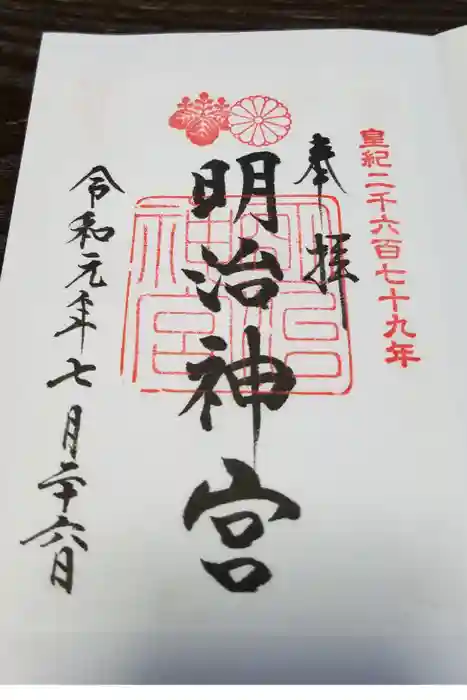 皇紀二千六百七十九年
奉拝
明治神宮
明治神宮
令和元年七月二十六日